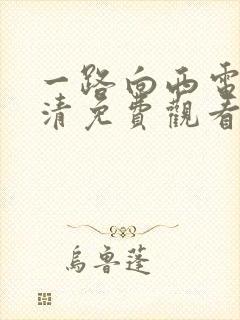 一路向西電
清免費觀看
烏魯蓬